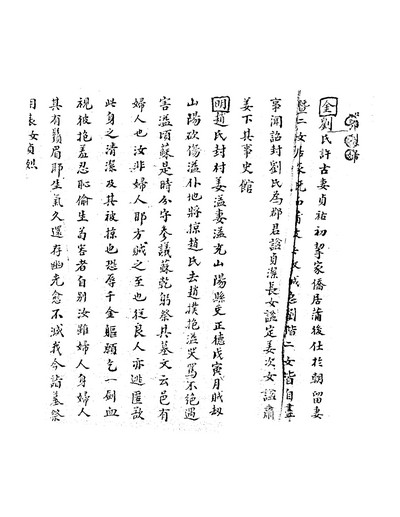 金劉氏許古妻貞祐初挈家僑居蒲後仕於朝留妻
暨二女 城急劉偕二女皆自盡
事聞詔封劉氏爲郡君諡貞潔長女諡定姜次女諡肅
姜下其事史館
明趙氏封村姜溢妻溢充山陽縣吏正德戊寅月賊刼
山陽砍傷溢仆地將掠趙氏去趙撲抱溢哭罵不絶遇
害溢頃蘇是時分守參議蘇乾躬祭其墓文云邑有
婦人也汝非婦人耶方賊之至也從良人亦逃匿歘
此身之清潔及其被掠也恐辱千金軀願乞一劍血
視彼抱羞忍恥偷生爲害者自别汝雖婦人身婦人
其有鬚眉耶生氣久還存幽光愈不滅我今詣墓祭
表女貞烈